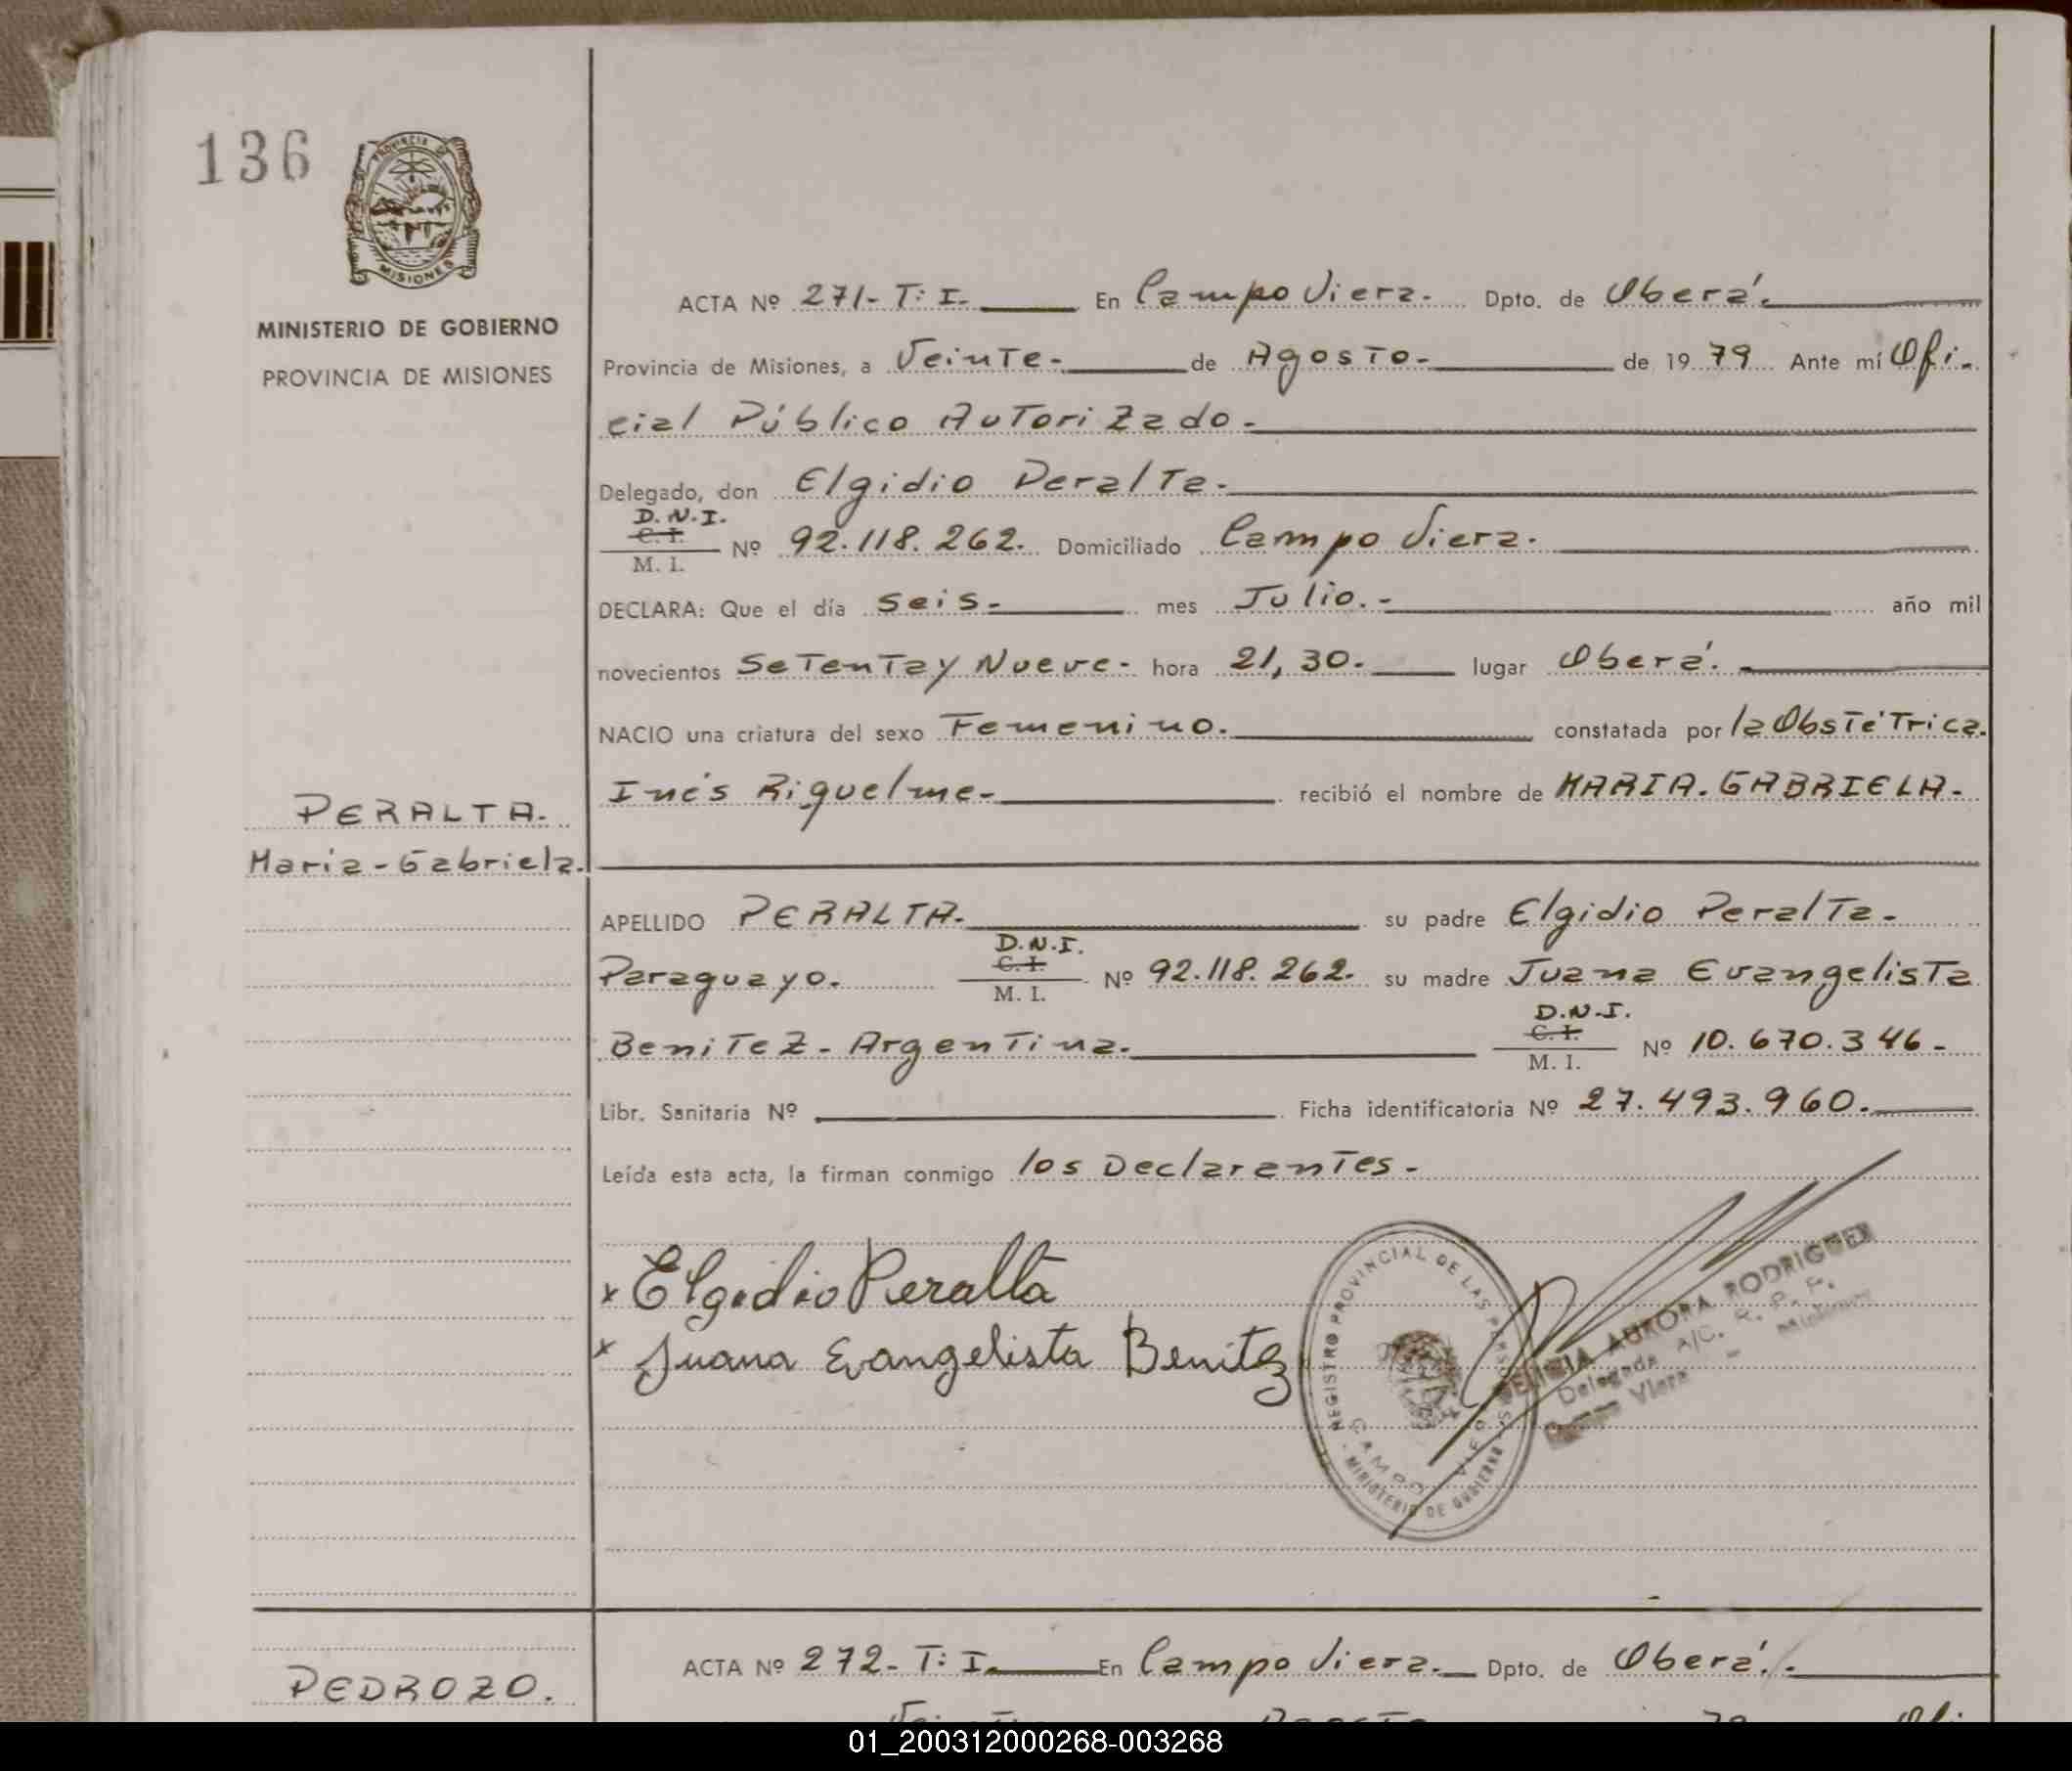 136
PROVINCIA DE
MISIONES
MINISTERIO DE GOBIERNO
PROVINCIA DE MISIONES
ACTA Nº 271- T: I. En Campo Viera. Dpto. de Oberá.
Provincia de Misiones, a Veinte- de Agosto- de 1979 Ante mí Ofi-
cial Público Autorizado-
Delegado, don Elgidio Peralta-
D.N.I.
C. I.
M. I. Nº 92.118.262. Domiciliado Campo Viera.
DECLARA: Que el día seis- mes Julio.- año mil
novecientos Setenta y Nueve- hora 21,30. lugar Oberá.-
NACIO una criatura del sexo Femenino. constatada por la Obstétrica.
Inés Riquelme- recibió el nombre de MARIA. GABRIELA-
PERALTA.
Maria-Gabriela.
APELLIDO PERALTA. su padre Elgidio Peralta-
Paraguayo. D.N.I. C. I. M. I. Nº 92.118.262. su madre Juana Evangelista
Benitez- Argentina. D.N.I. C. I. M. I. Nº 10.670.346-
Libr. Sanitaria Nº Ficha identificatoria Nº 27.493.960.
Leída esta acta, la firman conmigo los Declarantes-
x Elgidio Peralta
x Juana Evangelista Benitez
REGISTRO PROVINCIAL DE LAS PERSONAS
MINISTERIO DE GOBIERNO
CAMPO VIERA
AURORA RODRIGUEZ
Delegada A/C. R. P. P.
Campo Viera - Misiones
PEDROZO.
ACTA Nº 272- T: I. En Campo Viera. Dpto. de Oberá.-
01_200312000268-003268